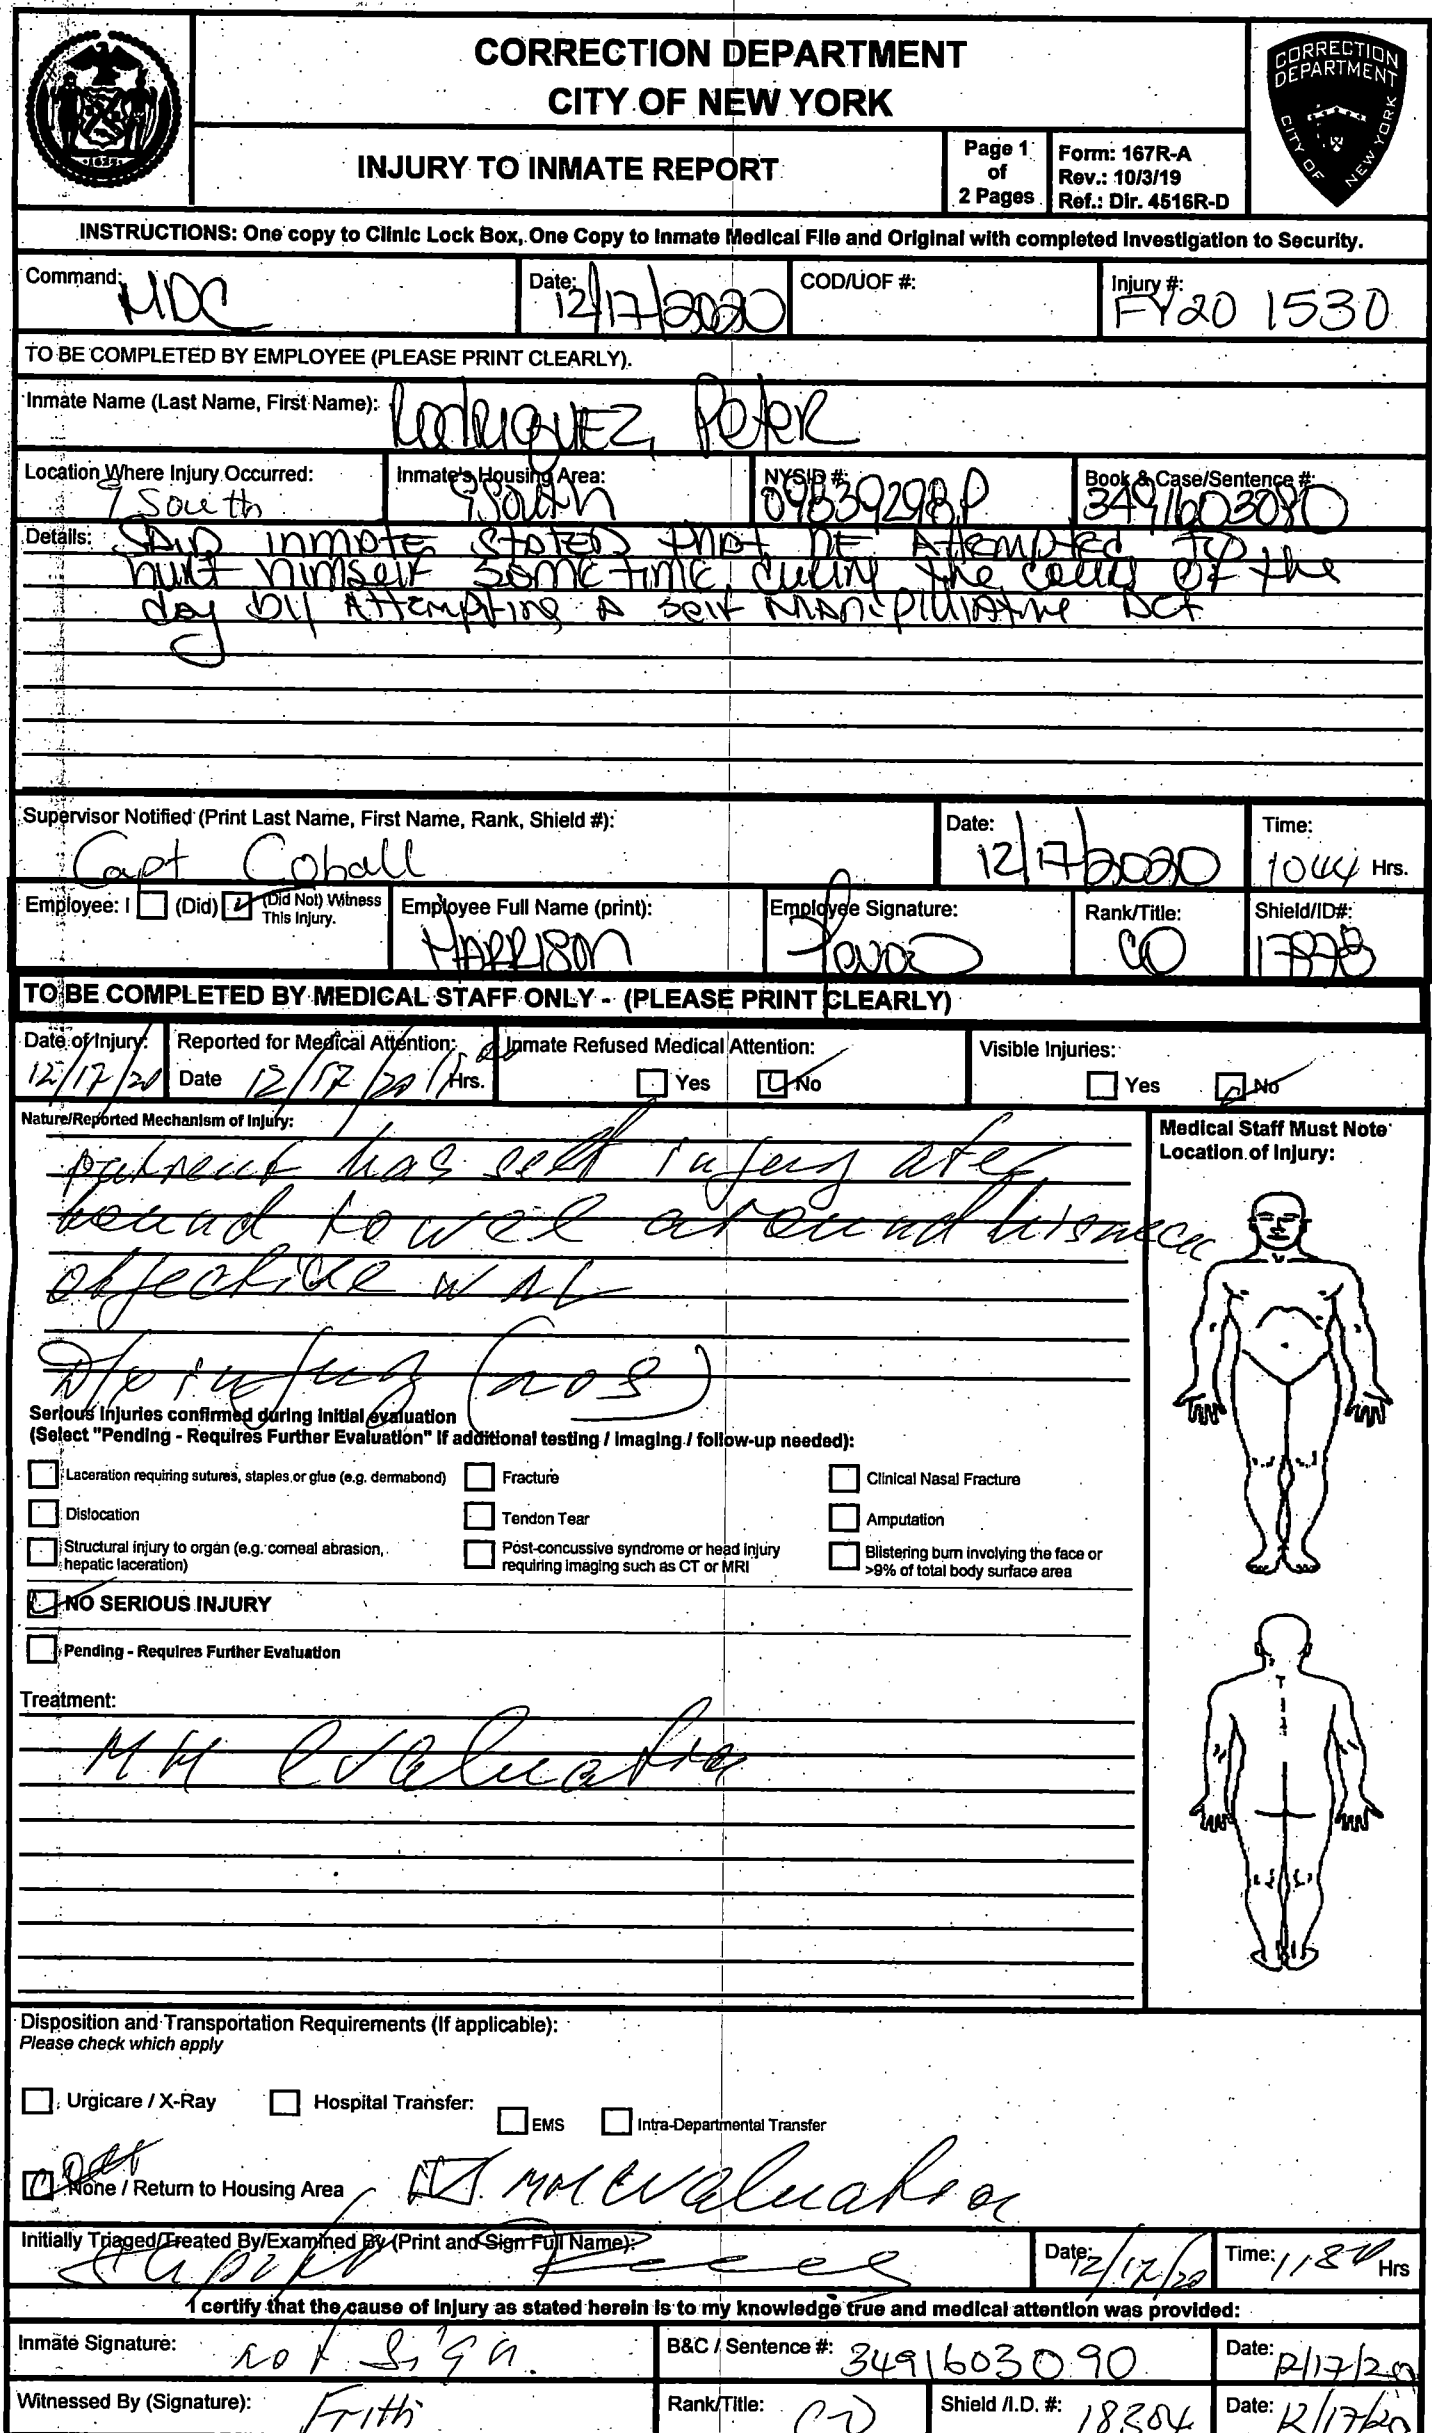 CORRECTION DEPARTMENT
CITY OF NEW YORK
INJURY TO INMATE REPORT
Page 1
of
2 Pages
Form: 167R-A
Rev.: 10/3/19
Ref.: Dir. 4516R-D
CORRECTION
DEPARTMENT
CITY OF NEW YORK
INSTRUCTIONS: One copy to Clinic Lock Box, One Copy to Inmate Medical File and Original with completed Investigation to Security.
Command: MDC
Date: 12/17/2020
COD/UOF #:
Injury #: FY20 1530
TO BE COMPLETED BY EMPLOYEE (PLEASE PRINT CLEARLY).
Inmate Name (Last Name, First Name): Rodriguez, Peter
Location Where Injury Occurred: 9 South
Inmate's Housing Area: 9South
NYSID #: 09839298P
Book & Case/Sentence #: 3491603080
Details: SAID inmate STATED that HE Attempted TO
hurt himself sometime during the cours OF the
day by Attempting A self Manipulative Act
Supervisor Notified (Print Last Name, First Name, Rank, Shield #):
Capt Coball
Date: 12/17/2020
Time: 1044 Hrs.
Employee: I (Did) (Did Not) Witness This Injury.
Employee Full Name (print): HARRISON
Employee Signature:
Rank/Title: CO
Shield/ID#:
TO BE COMPLETED BY MEDICAL STAFF ONLY - (PLEASE PRINT CLEARLY)
Date of Injury: 12/17/20
Reported for Medical Attention: Date 12/17/20 Hrs.
Inmate Refused Medical Attention: Yes No
Visible Injuries: Yes No
Nature/Reported Mechanism of Injury:
patient has self injury after
bound towel around his neck
objective WNL
D/x injury (nos)
Medical Staff Must Note
Location of Injury:
Serious Injuries confirmed during initial evaluation
(Select "Pending - Requires Further Evaluation" if additional testing / imaging / follow-up needed):
Laceration requiring sutures, staples or glue (e.g. dermabond)
Fracture
Clinical Nasal Fracture
Dislocation
Tendon Tear
Amputation
Structural injury to organ (e.g. corneal abrasion,
hepatic laceration)
Post-concussive syndrome or head injury
requiring imaging such as CT or MRI
Blistering burn involving the face or
>9% of total body surface area
NO SERIOUS INJURY
Pending - Requires Further Evaluation
Treatment:
MH evaluation
Disposition and Transportation Requirements (If applicable):
Please check which apply
Urgicare / X-Ray
Hospital Transfer:
EMS
Intra-Departmental Transfer
None / Return to Housing Area
MH evaluation
Initially Triaged/Treated By/Examined By (Print and Sign Full Name):
Date: 12/17/20
Time: Hrs
I certify that the cause of injury as stated herein is to my knowledge true and medical attention was provided:
Inmate Signature: not Sign.
B&C / Sentence #: 3491603090
Date: 12/17/20
Witnessed By (Signature): Frith
Rank/Title: CO
Shield /I.D. #: 18304
Date: 12/17/20